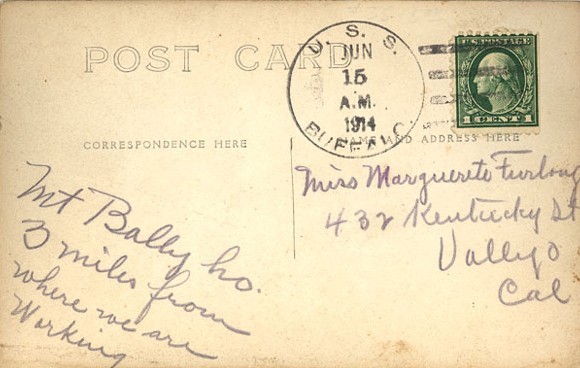 POST CARD
U. S. S.
JUN
15
A.M.
1914
BUFFALO
U.S. POSTAGE
1 CENT 1
CORRESPONDENCE HERE
NAME AND ADDRESS HERE
Mt Bally ho.
3 miles from
where we are
Working
Miss Marguerite Furlong
432 Kentucky St
Vallejo
Cal